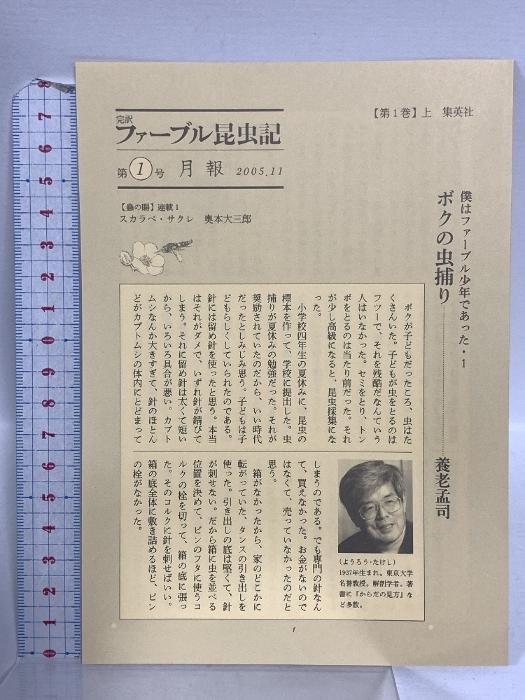 完訳
ファーブル昆虫記
第1号 月報 2005.11
【蟲の賜】連載1
スカラベ・サクレ 奥本大三郎
【第1巻】上 集英社
僕はファーブル少年であった・1
ボクの虫捕り
養老孟司
ボクが子どもだったころ、虫はた
くさんいた。子どもが虫をとるのは
フツーで、それを残酷だなんていう
人はいなかった。セミをとり、トン
ボをとるのは当たり前だった。それ
が少し高級になると、昆虫採集にな
った。
小学校四年生の夏休みに、昆虫の
標本を作って、学校に提出した。虫
捕りが夏休みの勉強だった。それが
奨励されていたのだから、いい時代
だったとしみじみ思う。子どもは子
どもらしくしていられたのである。
針には留め針を使ったと思う。本当
はそれがダメで、いずれ針が錆びて
しまう。それに留め針は太くて短い
から、いろいろ具合が悪い。カブト
ムシなんか大きすぎて、針のほとん
どがカブトムシの体内にとどまって
しまうのである。でも専門の針なん
て、買えなかった。お金がないので
はなくて、売っていなかったのだと
思う。
箱がなかったから、家のどこかに
転がっていた、タンスの引き出しを
使った。引き出しの底は堅くて、針
が刺せない。だから箱に虫を並べる
位置を決めて、ビンのフタに使うコ
ルクの栓を切って、箱の底に張っ
た。そのコルクに針を刺せばいい。
箱の底全体に敷き詰めるほど、ビン
の栓がなかった。
(ようろう・たけし)
1937年生まれ。東京大学
名誉教授。解剖学者。著
書に『からだの見方』な
ど多数。
1
8
7
6
5
4
3
2
1
0
9
8
7
6
5
4
3
2
1
0